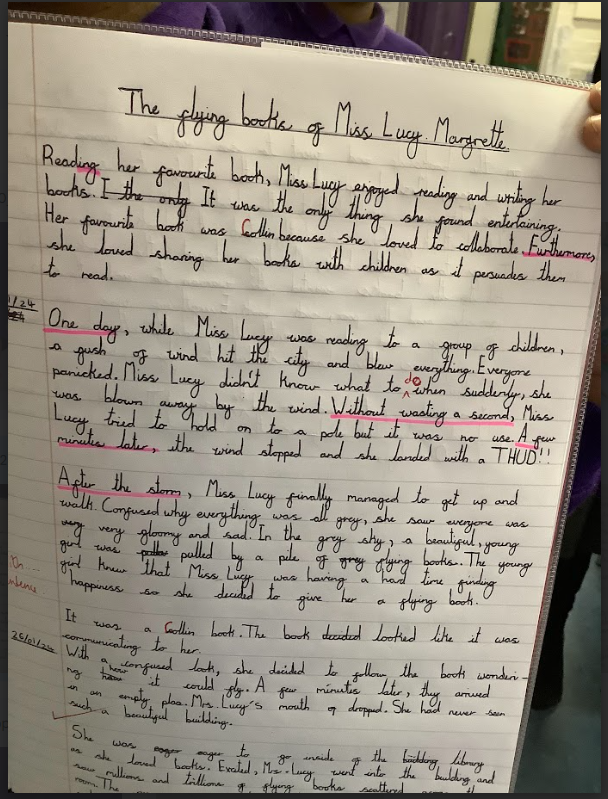 The flying books of Miss Lucy. Margrette.
Reading her favourite book, Miss Lucy enjoyed reading and writing her
books. I the only It was the only thing she found entertaining.
Her favourite book was Collin because she loved to collaborate. Furthermore,
she loved sharing her books with children as it persuades them
to read.
1/24
One day, while Miss Lucy was reading to a group of children,
a gush of wind hit the city and blew everything. Everyone
panicked. Miss Lucy didn't know what to do when suddenly, she
was blown away by the wind. Without wasting a second, Miss
Lucy tried to hold on to a pole but it was no use. A few
minutes later, the wind stopped and she landed with a THUD!!
After the storm, Miss Lucy finally managed to get up and
walk. Confused why everything was all grey, she saw everyone was
very very gloomy and sad. In the grey sky, a beautiful, young
girl was pulled by a pile of grey flying books. The young
girl knew that Miss Lucy was having a hard time finding
happiness so she decided to give her a flying book.
It was a Collin book. The book decided looked like it was
communicating to her.
With a confused look, she decided to follow the book wonderi-
ng how it could fly. A few minutes later, they arrived
in an empty plaa. Mrs. Lucy's mouth of dropped. She had never seen
such a beautiful building.
She was eager to go inside of the library
as she loved books. Exated, Mrs. Lucy went into the building and
saw millions and trillions of flying books scattered
room. The